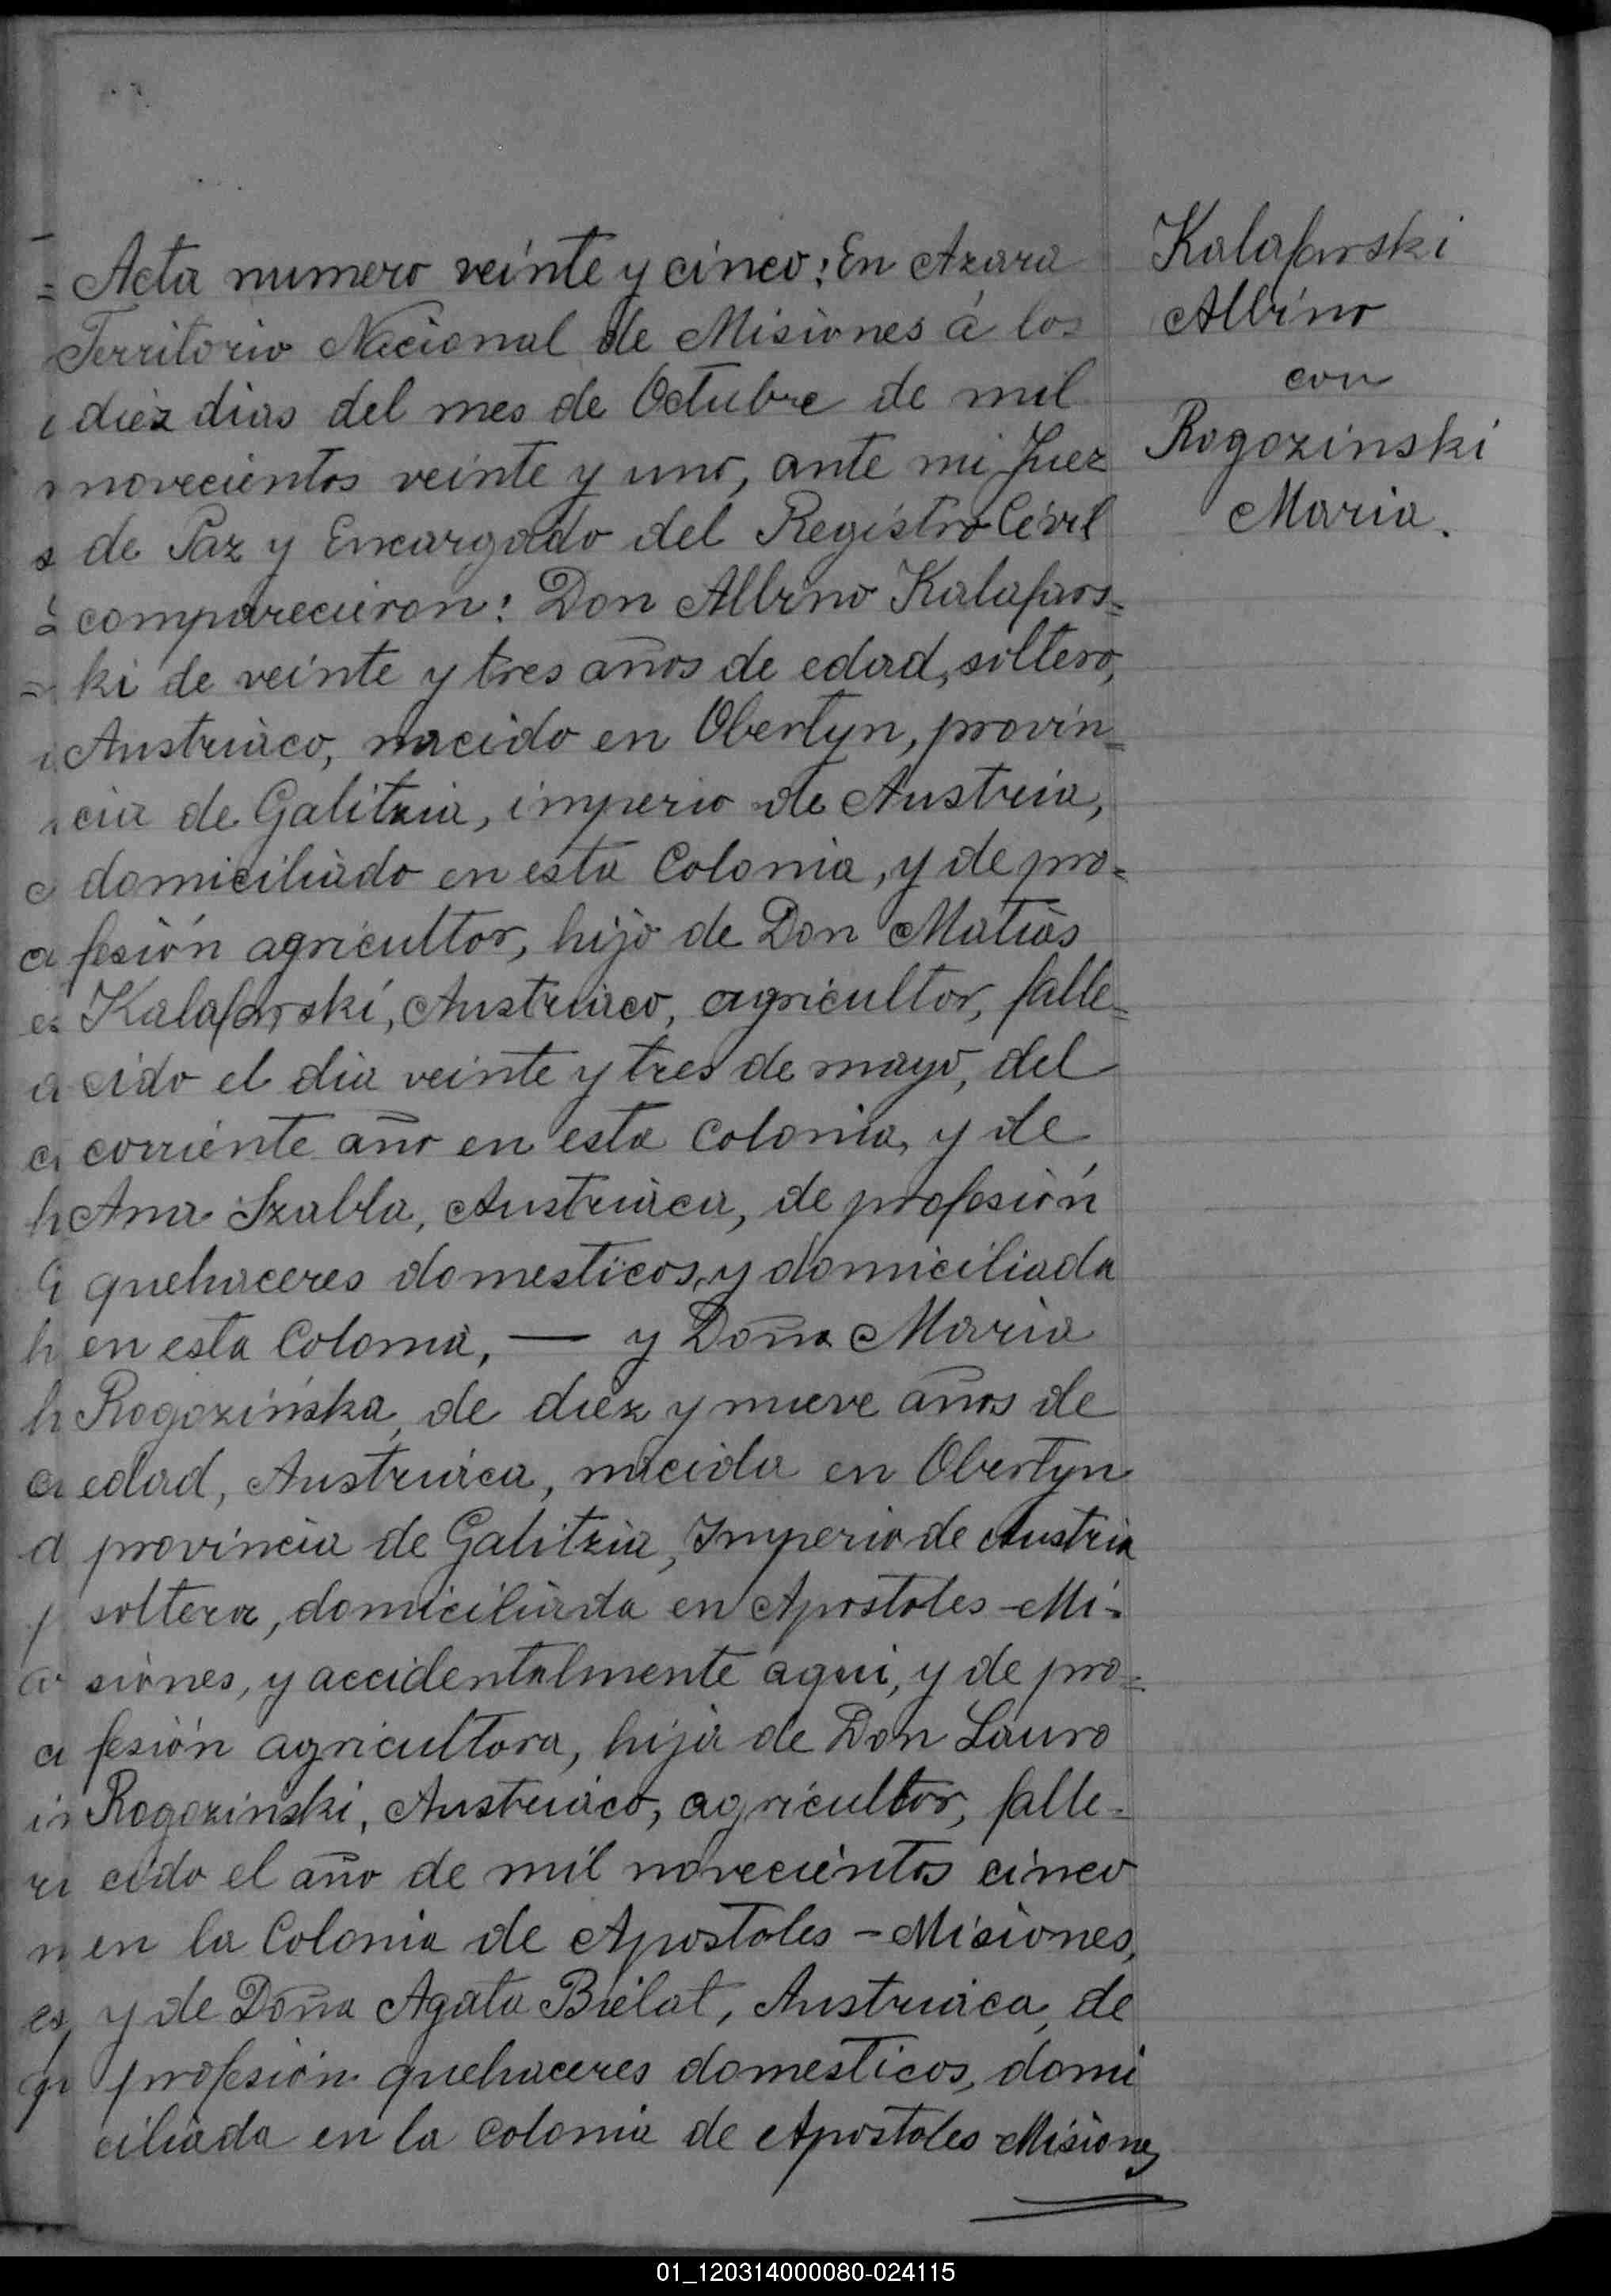 Acta numero veinte y cinco: En Azara
Territorio Nacional de Misiones á los
diez dias del mes de Octubre de mil
novecientos veinte y uno, ante mi Juez
de Paz y Encargado del Registro Civil
comparecieron: Don Albino Kalafars=
ki de veinte y tres años de edad, soltero,
Austriaco, nacido en Obertyn, provin=
cia de Galitzia, imperio de Austria,
domiciliado en esta Colonia, y de pro=
fesión agricultor, hijo de Don Matias
Kalafarski, Austriaco, agricultor, falle=
cido el dia veinte y tres de mayo, del
corriente año en esta colonia, y de
Ana Szabla, Austriaca, de profesión
quehaceres domesticos, y domiciliada
en esta Colonia, — y Doña Maria
Rogozińska, de diez y nueve años de
edad, Austriaca, nacida en Obertyn
provincia de Galitzia, Imperio de Austria
soltera, domiciliada en Apostoles - Mi=
siones, y accidentalmente aqui, y de pro=
fesión agricultora, hija de Don Lauro
Rogozinski, Austriaco, agricultor, falle=
cido el año de mil novecientos cinco
en la Colonia de Apostoles - Misiones,
y de Doña Agata Bielat, Austriaca, de
profesión quehaceres domesticos, domi
ciliada en la colonia de Apostoles Misiones
Kalafarski
Albino
con
Rogozinski
Maria.
01_120314000080-024115